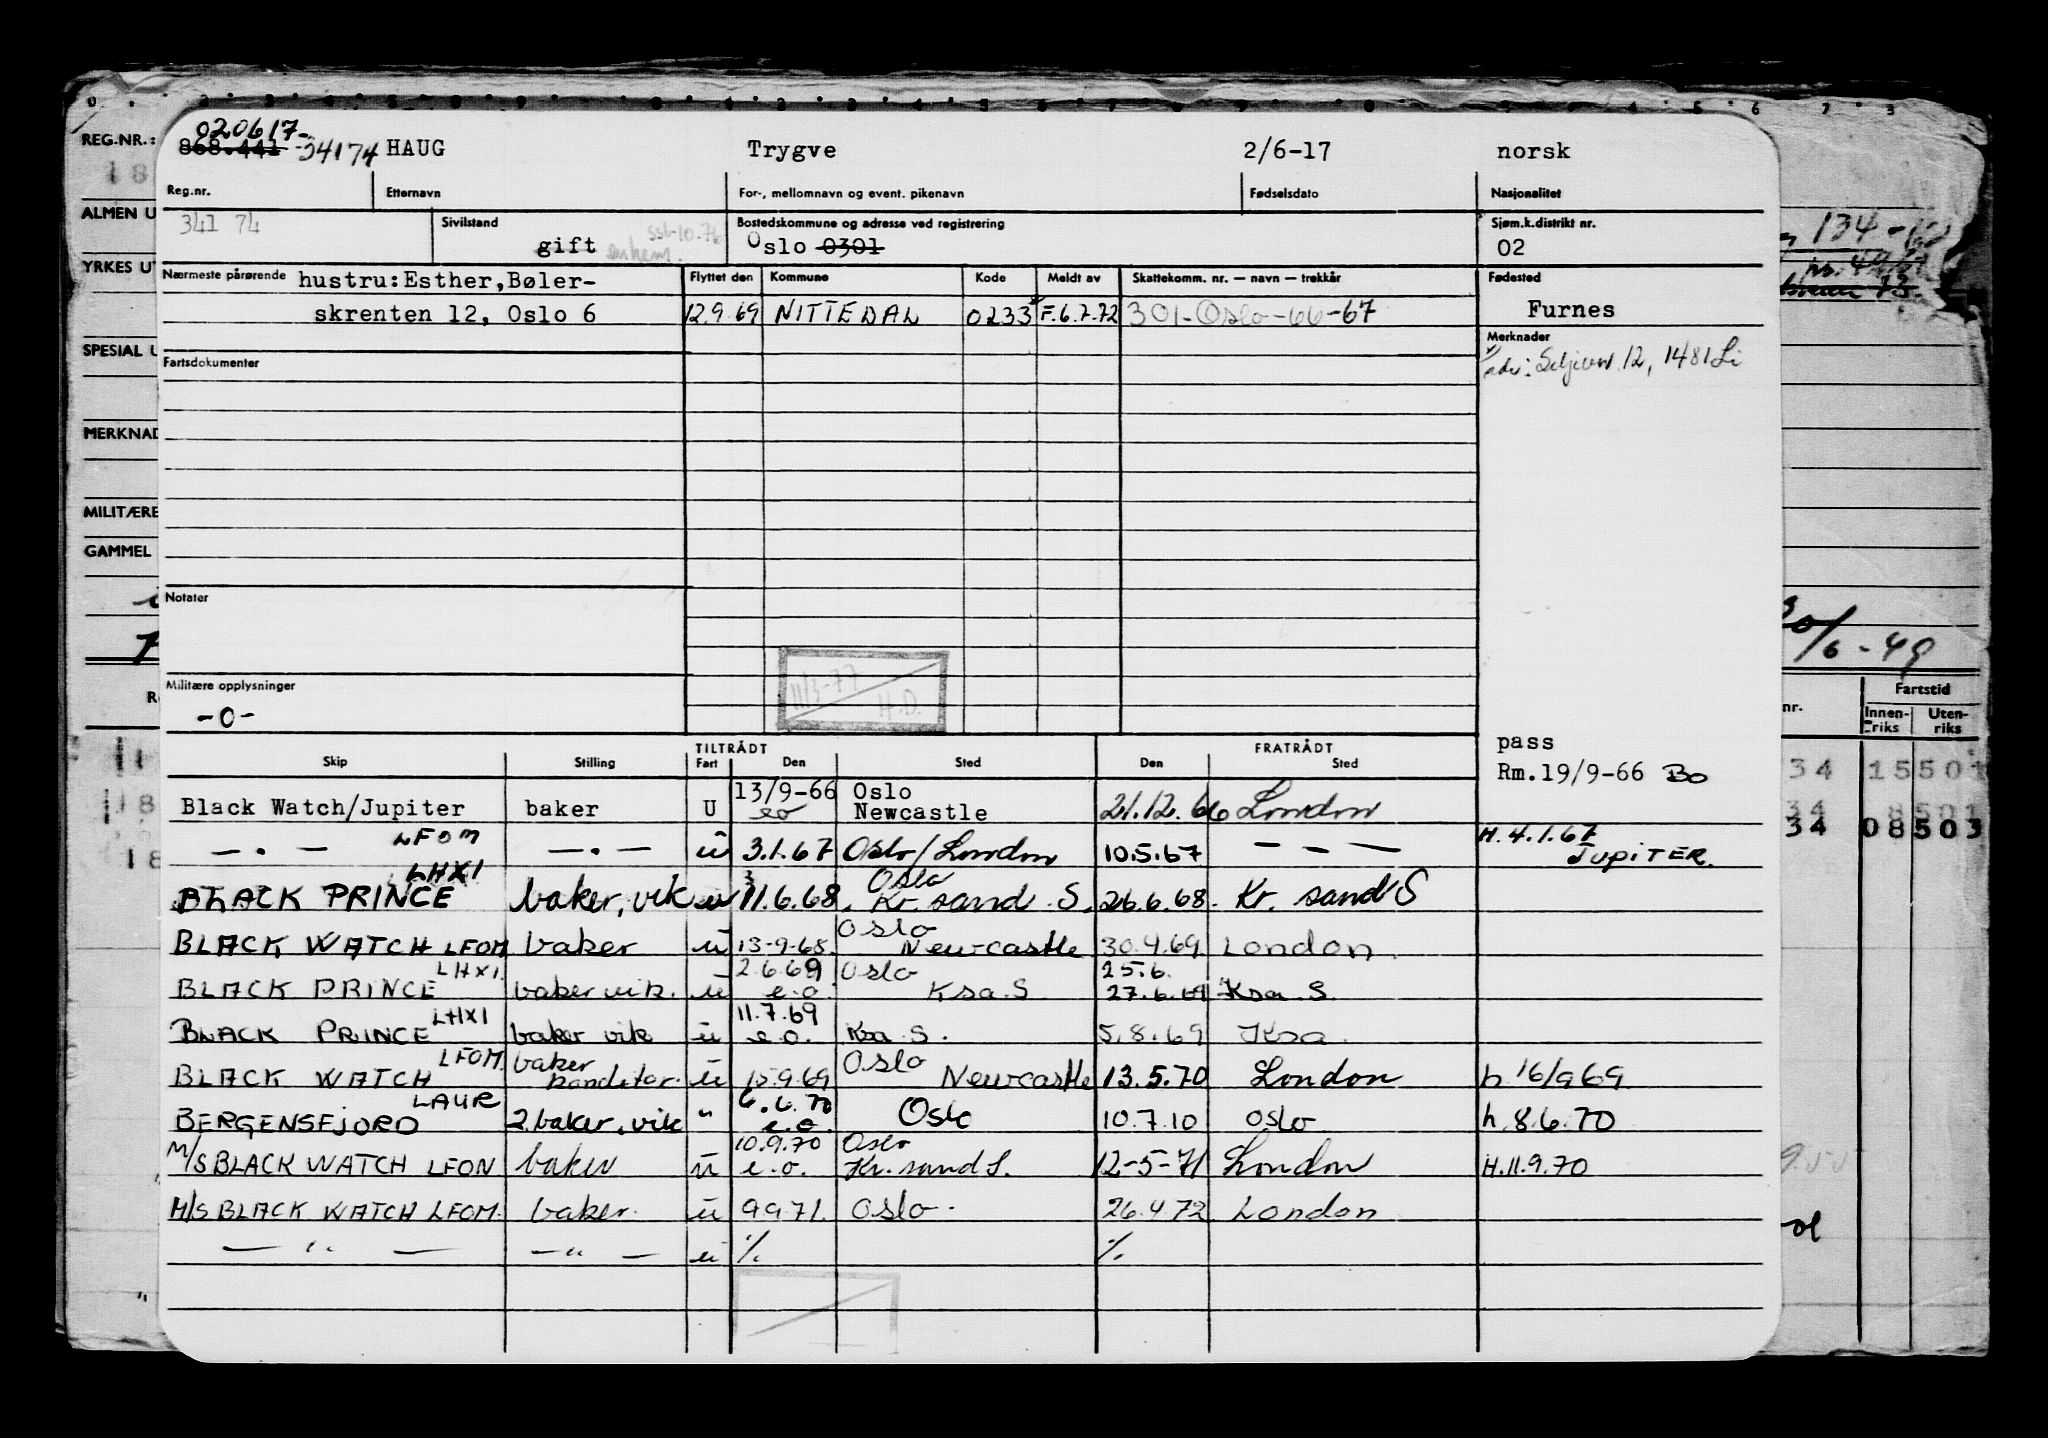 020617-
868.441 -34174 HAUG Trygve 2/6-17 norsk
REG.NR.: Reg.nr. Etternavn For-, mellomnavn og event. pikenavn Fødselsdato Nasjonalitet
341 74 Sivilstand Bostedskommune og adresse ved registrering Sjøm.k.distrikt nr.
gift Oslo 0301 02
Nærmeste pårørende hustru: Esther, Bøler- Flyttet den Kommune Kode Meldt av Skattekomm. nr. — navn — trekkår Fødested
skrenten 12, Oslo 6 12.9.69 NITTEDAL 0233 F.6.7.72 301-Oslo-66-67 Furnes
Merknader
Fartsdokumenter 12, 1481 Li
Notater
11/3-77
H.D.
Militære opplysninger
-0-
TILTRÅDT FRATRÅDT pass
Skip Stilling Fart Den Sted Den Sted Rm.19/9-66 Bo
Black Watch/Jupiter baker U 13/9-66 eo Oslo Newcastle 21.12.66 London
— . — LFOM — . — u 3.1.67 Oslo/London 10.5.67 — — — H.4.1.67 JUPITER.
BLACK PRINCE LHXI baker, vik u 11.6.68. Oslo Kr. sand S. 26.6.68. Kr. sand S
BLACK WATCH LFOM baker u 13-9-68. Oslo Newcastle 30.4.69. London
BLACK PRINCE LHXI. baker vik. u 2.6.69 e.o. Oslo Ksa. S 25.6. 27.6.69 Ksa. S.
BLACK PRINCE LHXI baker vik u 11.7.69 e.o. Ksa. S. 5.8.69 Ksa.
BLACK WATCH LFOM. baker konditor. u 15.9.69 Oslo Newcastle 13.5.70 London h 16/9 69
BERGENSFJORD LAUR 2. baker, vik " 6.6.70 e.o. Oslo 10.7.10 oslo h. 8.6.70
M/S BLACK WATCH LFON baker u 10.9.70 e.o. Oslo Kr. sand S. 12-5-71 London H.11.9.70
M/S BLACK WATCH LFOM. baker. u 9.9.71. Oslo. 26.4.72 London
— " — — " — u %. %.
ALMEN U
YRKES UT
SPESIAL U
MERKNAD
MILITÆRE
GAMMEL
134-
30/6-49
nr. Fartstid
Innenriks Utenriks
34 15501
34 8501
34 08503